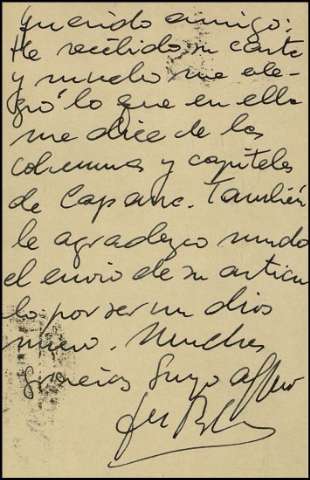 Querido amigo:
He recibido su carta
y mucho me ale-
gró lo que en ella
me dice de las
columnas y capiteles
de Capanc. También
le agradezco mucho
el envio de su articu
lo por ser un dios
nuevo. Muchas
gracias Suyo affmo